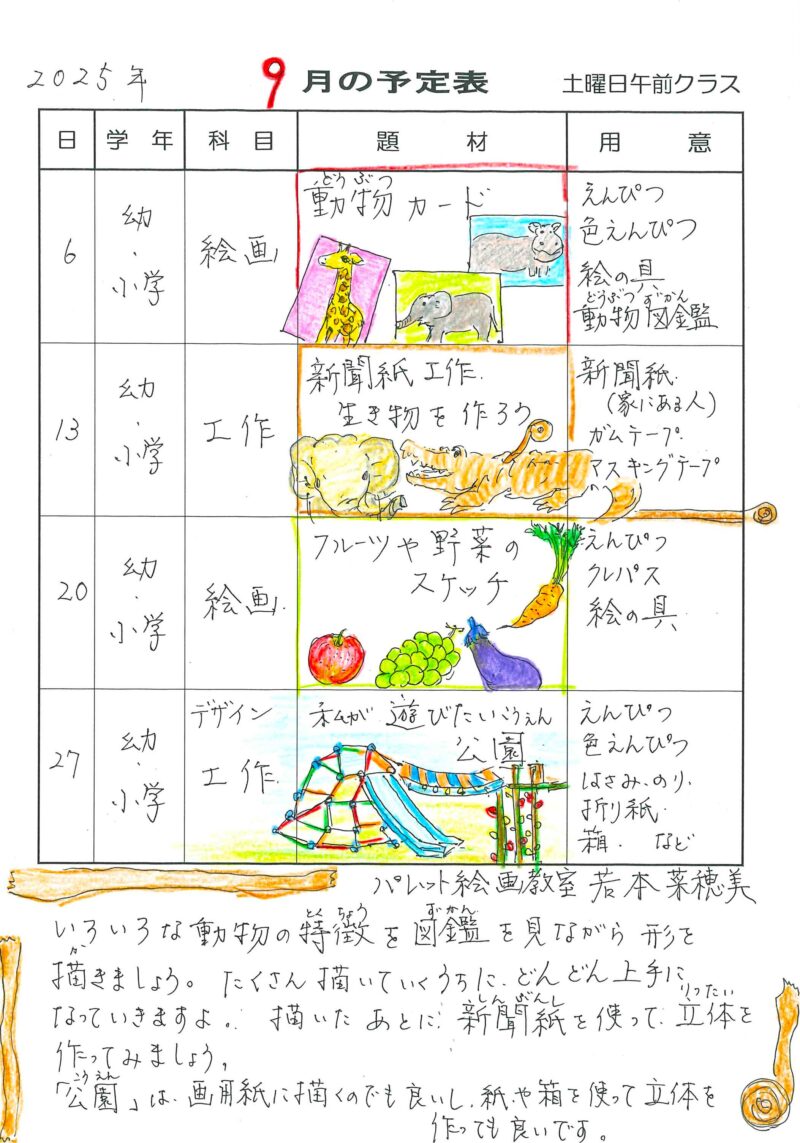 2025年 9月の予定表 土曜日午前クラス
日 学年 科目 題材 用意
6
幼・小学
絵画
どうぶつ
動物カード
えんぴつ
色えんぴつ
絵の具
どうぶつ ずかん
動物図鑑
13
幼・小学
工作
新聞紙工作.
生き物を作ろう
新聞紙.
(家にある人)
ガムテープ.
マスキングテープ
20
幼・小学
絵画.
フルーツや野菜の
スケッチ
えんぴつ
クレパス
絵の具
27
幼・小学
デザイン
工作.
私が遊びたいこうえん
公園
えんぴつ
色えんぴつ
はさみ.のり.
折り紙.
箱. など
パレット絵画教室 若本菜穂美
とくちょう ずかん
いろいろな動物の特徴を図鑑を見ながら形を
か
描きましょう。たくさん描いていくうちに、どんどん上手に
しんぶんし りったい
なっていきますよ。描いたあとに、新聞紙を使って、立体を
作ってみましょう。
こうえん
「公園」は、画用紙に描くのでも良いし、紙や箱を使って立体を
作っても良いです。